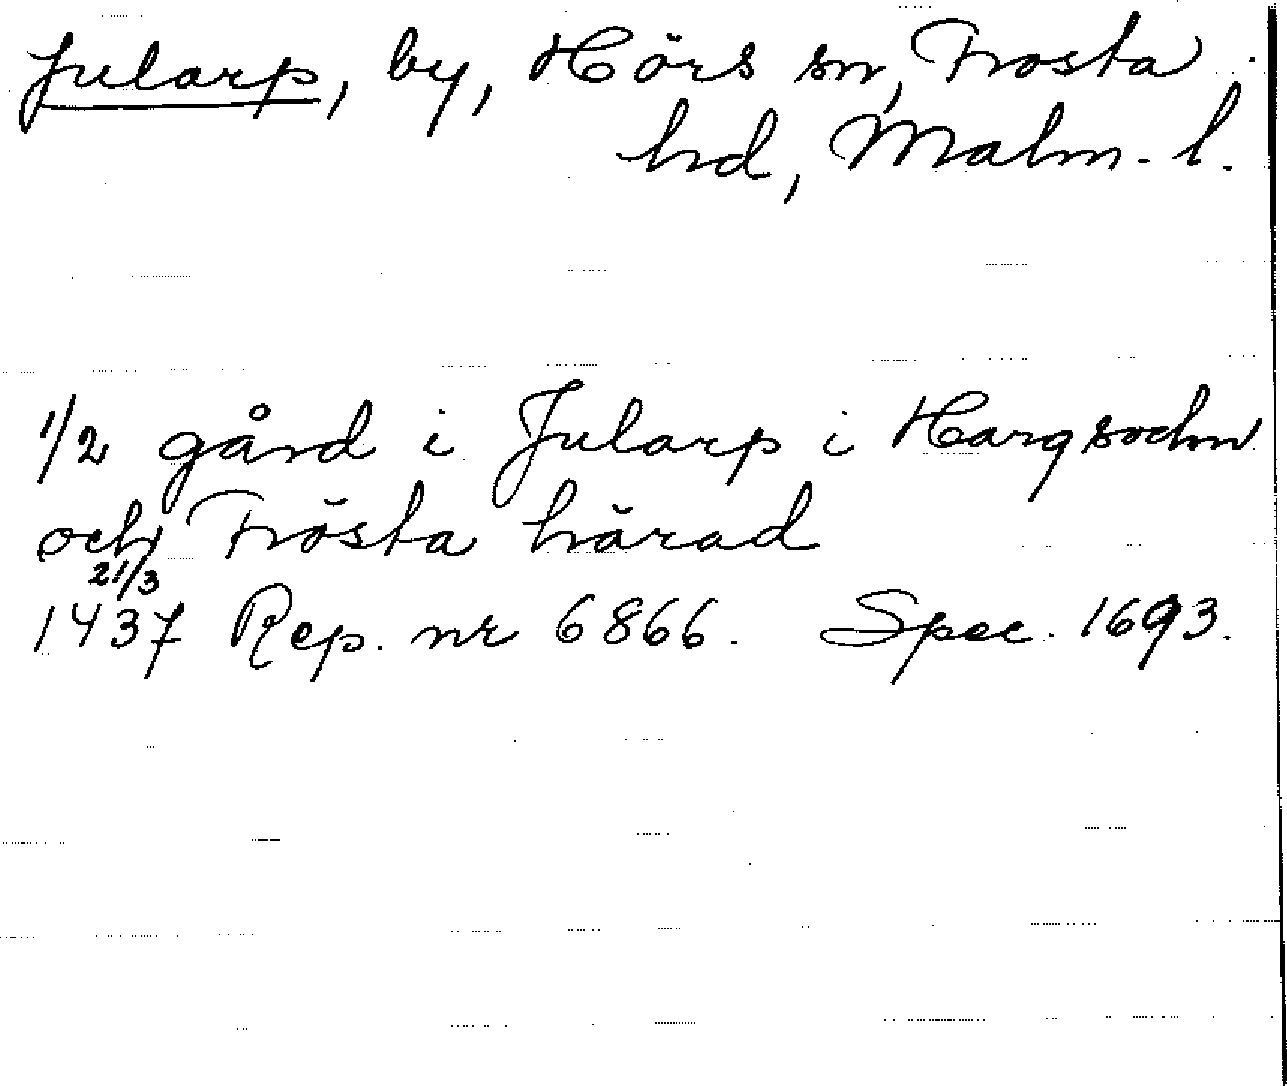 Jularp, by, Hörs sn, Frosta
hd, Malm. l.
1/2 gård i Jularp i Harg sochn
och Frösta härad
21/3
1437 Rep. nr 6866. Spec. 1693.